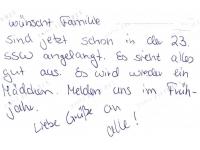 wünscht Familie
sind jetzt schon in der 23.
SSW angelangt. Es sieht alles
gut aus. Es wird wieder ein
Mädchen. Melden uns im Früh-
jahr.
Liebe Grüße an
alle!